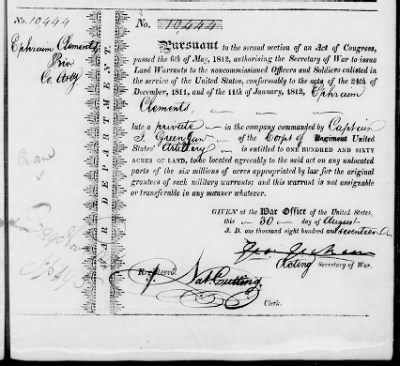 No. 10444
Ephraim Clements
Co. Arty
WAR DEPARTMENT.
No. 10444
Pursuant to the second section of an Act of Congress,
passed the 6th of May, 1812, authorising the Secretary of War to issue
Land Warrants to the noncommissioned Officers and Soldiers enlisted in
the service of the United States, conformably to the acts of the 24th
of December, 1811, and of the 11th of January, 1812, Ephraim
Clements,
late a private in the company commanded by Captain
of the Corps of Regiment United
States' Artillery is entitled to ONE HUNDRED AND SIXTY
ACRES OF LAND, to be located agreeably to the said act on any unlocated
parts of the six millions of acres appropriated by law for the original
grantees of such military warrants; and this warrant is not assignable
or transferable in any manner whatever.
GIVEN at the War Office of the United States,
this 30 day of August
A. D. one thousand eight hundred and seventeen
Geo: Graham
Acting Secretary of War.
Registered
Nat. Cutting,
Clerk.